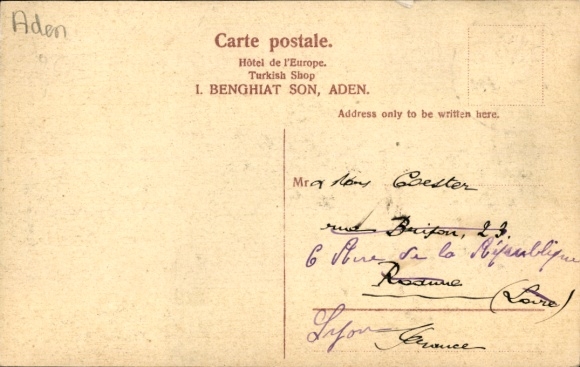 Aden
Carte postale.
Hôtel de l'Europe.
Turkish Shop
I. BENGHIAT SON, ADEN.
Address only to be written here.
Mr & Mrs Coester
rue 23.
6 Rue de la République
Roanne
(Loire)
Lyon
France